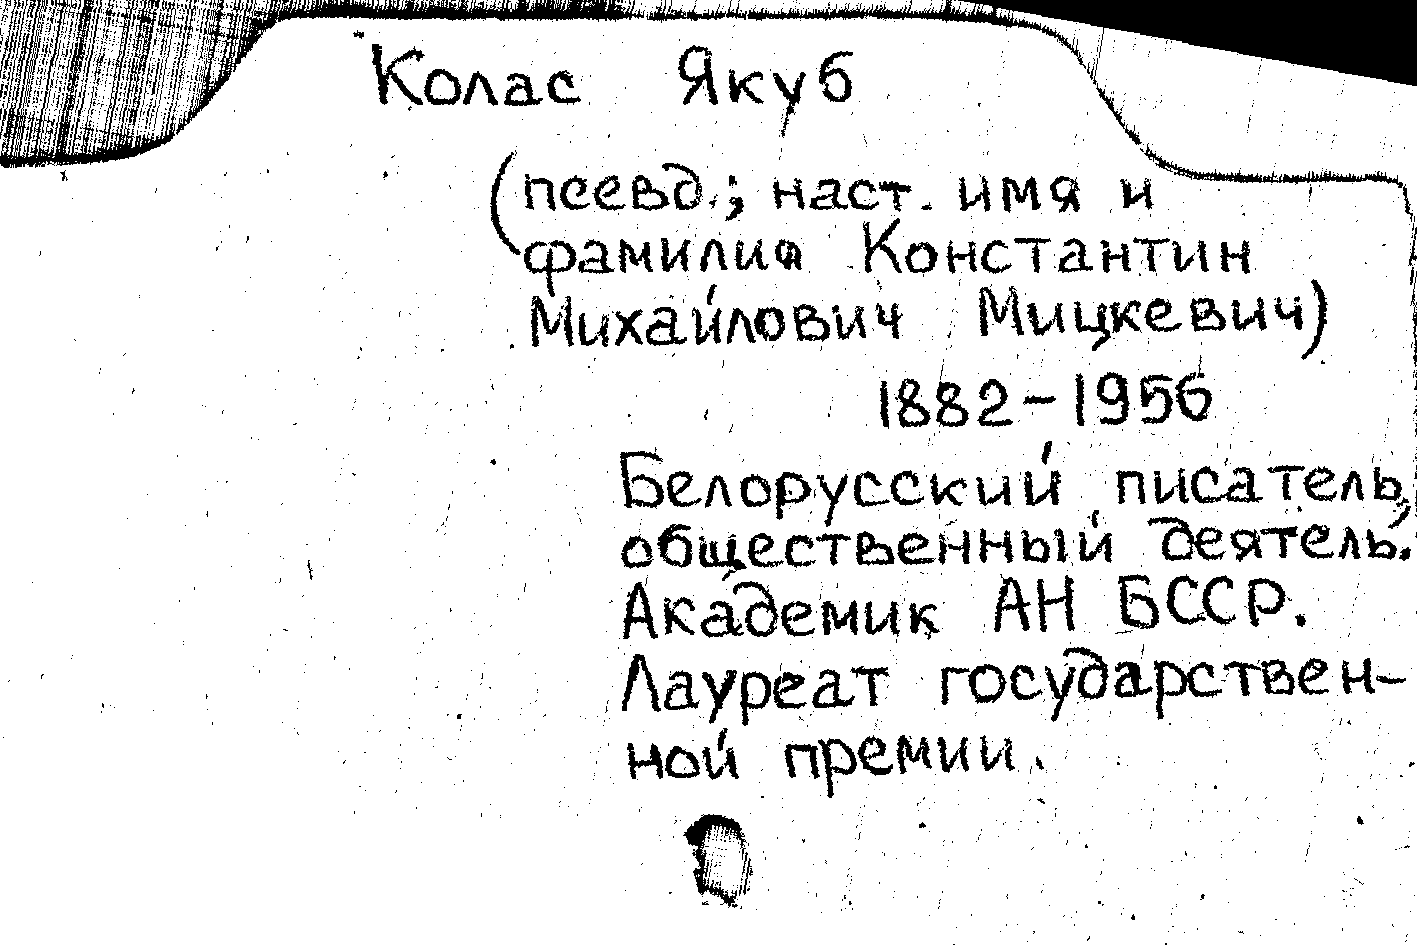 Колас Якуб
(псевд.; наст. имя и
фамилия Константин
Михайлович Мицкевич)
1882-1956
Белорусский писатель,
общественный деятель.
Академик АН БССР.
Лауреат государствен-
ной премии.